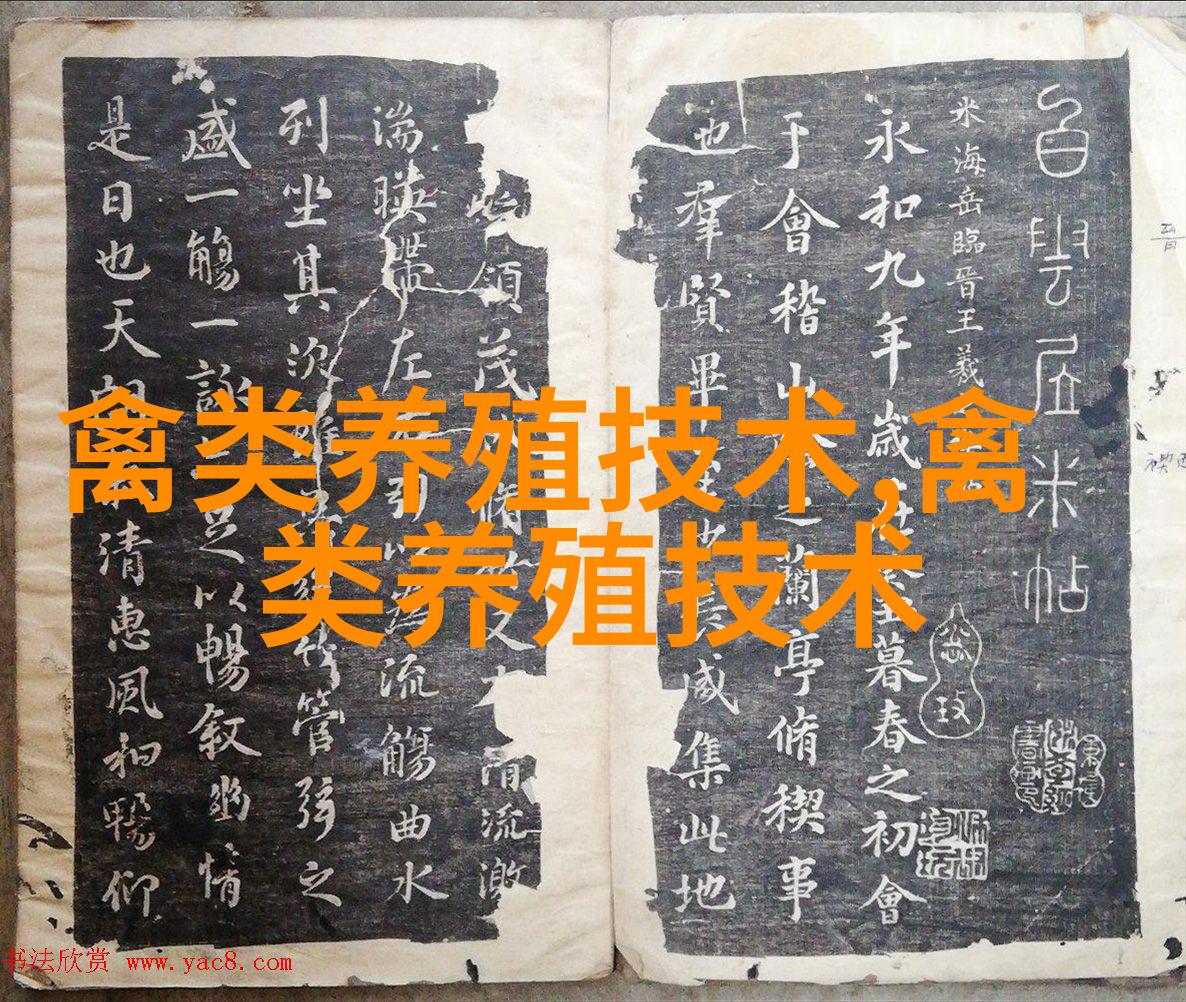 禽类养殖技术,禽
类养殖技术
白雲居米帖
米海岳臨晉王羲
永和九年歲暮春之初會
于會稽山之蘭亭脩稧事
也羣賢畢咸集此地
領茂脩又清流激
湍暎帶左引以為流觴曲水
列坐其次雖竹管弦之
盛一觴一詠足以暢敘幽情
是日也天朗清惠風和暢仰
书法欣赏 www.yac8.com